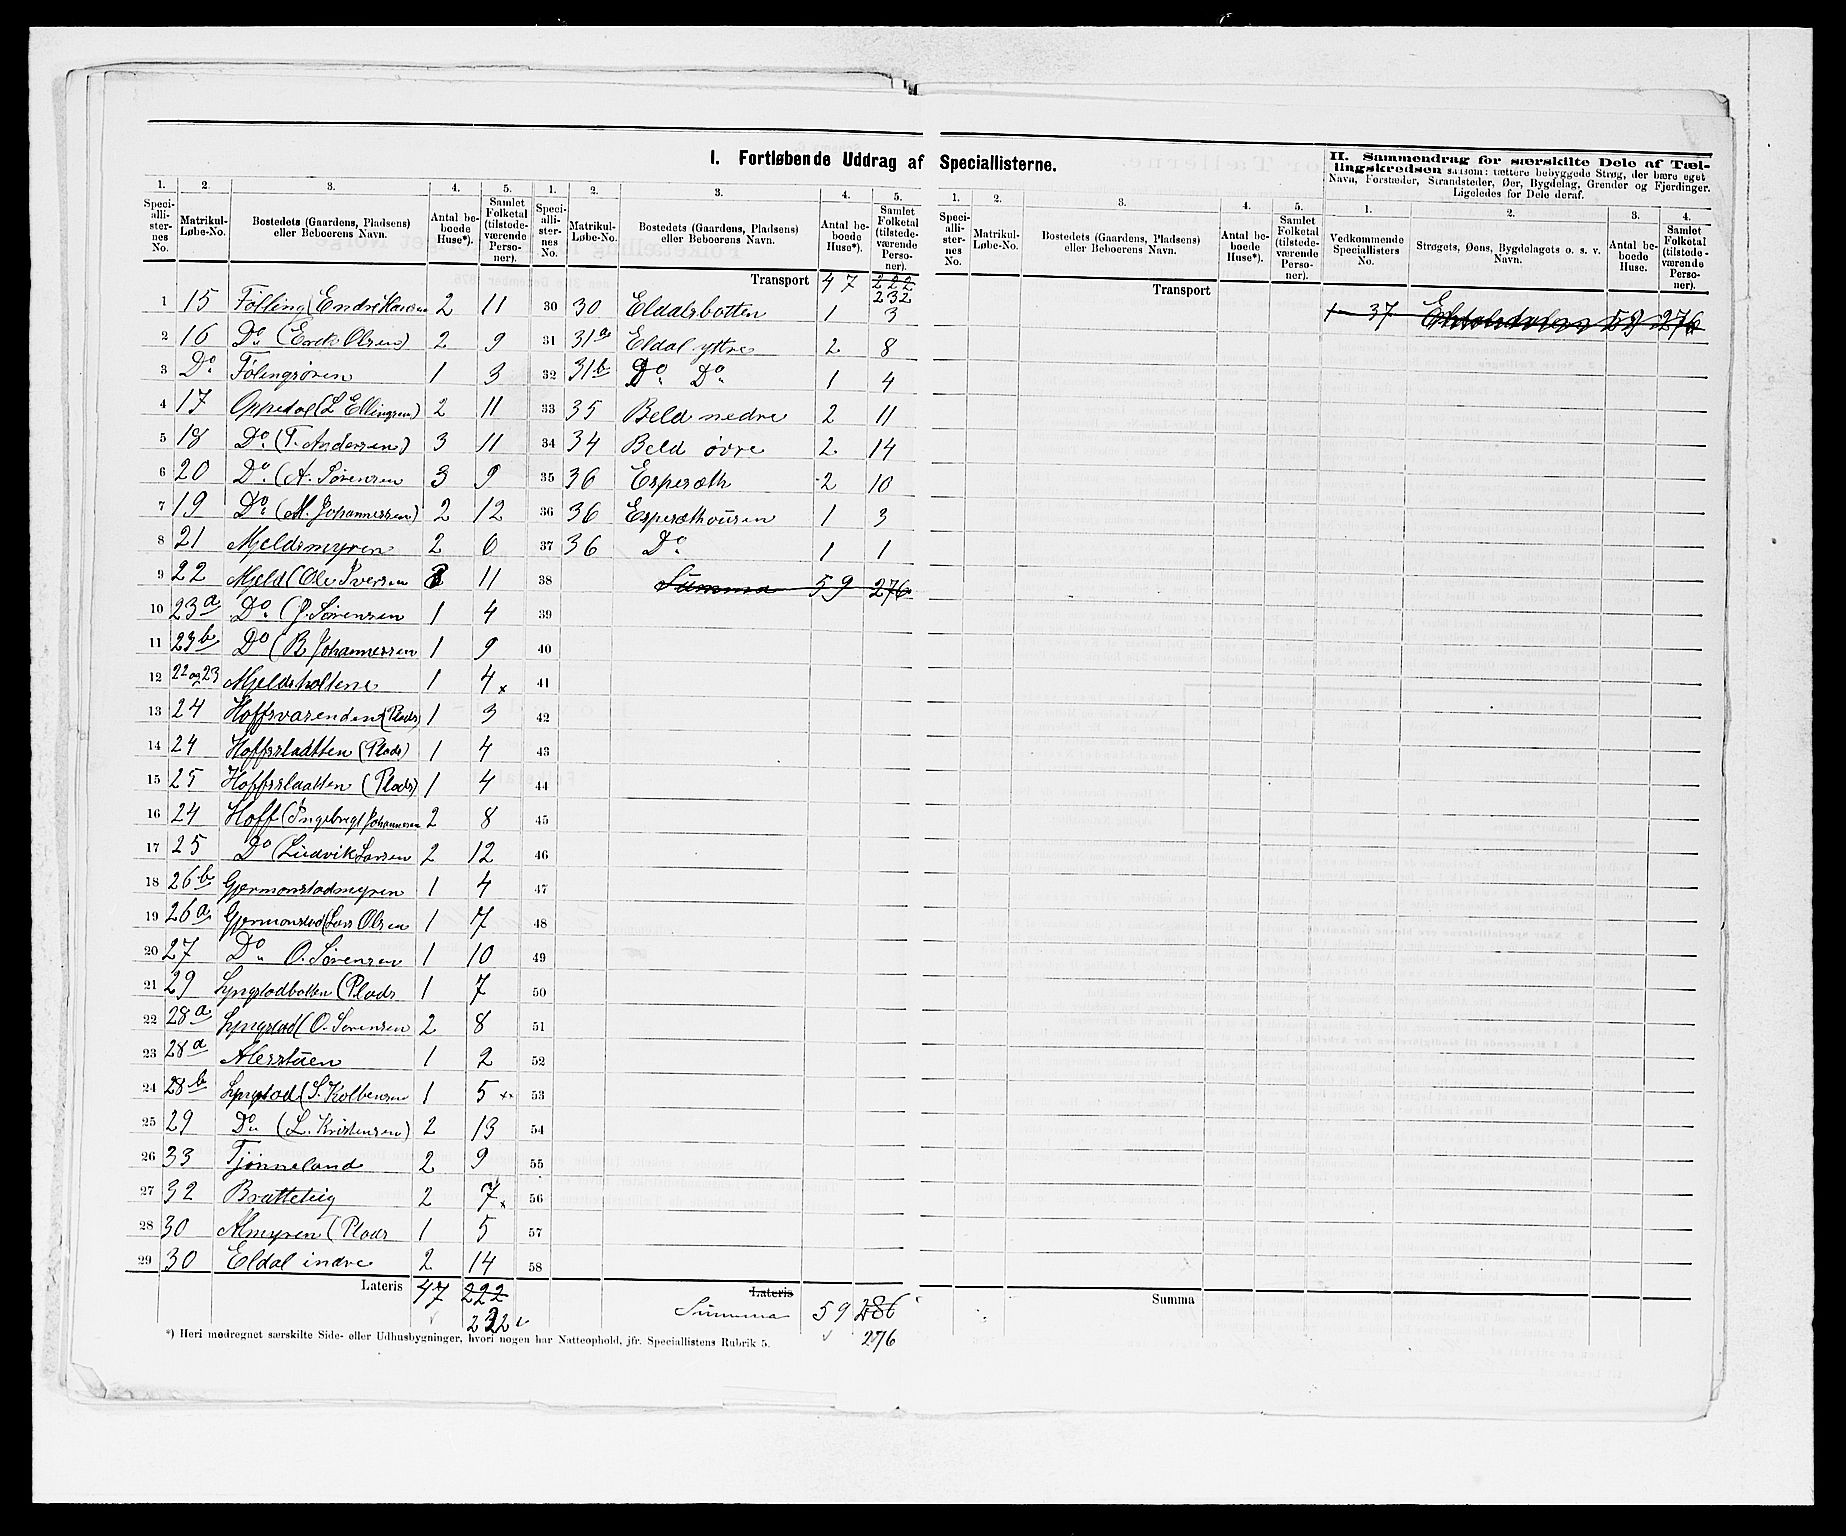 I. Fortløbende Uddrag af Speciallisterne.
II. Sammendrag for særskilte Dele af Tællingskredsen saasom: tættere bebyggede Strøg, der bære eget Navn, Forstæder, Strandsteder, Øer, Bygdelag, Grender og Fjerdinger. Ligeledes for Dele deraf.
1. 2. 3. 4. 5. 1. 2. 3. 4. 5. 1. 2. 3. 4. 5. 1. 2. 3. 4.
Speciallisternes No. Matrikul-Løbe-No. Bostedets (Gaardens, Pladsens) eller Beboerens Navn. Antal beboede Huse*). Samlet Folketal (tilstedeværende Personer).
Speciallisternes No. Matrikul-Løbe-No. Bostedets (Gaardens, Pladsens) eller Beboerens Navn. Antal beboede Huse*). Samlet Folketal (tilstedeværende Personer).
Speciallisternes No. Matrikul-Løbe-No. Bostedets (Gaardens, Pladsens) eller Beboerens Navn. Antal beboede Huse*). Samlet Folketal (tilstedeværende Personer).
Vedkommende Speciallisters No. Strøgets, Øens, Bygdelagets o. s. v. Navn. Antal beboede Huse. Samlet Folketal (tilstedeværende Personer).
1 15 Følling (Endre Hansen 2 11
2 16 Do (Erik Olsen) 2 9
3 Do Følingsøren 1 3
4 17 Oppedal (L Ellingsen) 2 11
5 18 Do (T. Andersen) 3 11
6 20 Do (A. Sørensen 3 9
7 19 Do (M. Johannessen) 2 12
8 21 Mjeldsmyren 2 6
9 22 Mjeld (Ole Iversen 11
10 23a Do (J. Sørensen 1 4
11 23b Do (B. Johannessen 1 9
12 22 og 23 Mjeldsholtene 1 4 x
13 24 Hoffsvarenden (Plads) 1 3
14 24 Hoffsslaatten (Plads) 1 4
15 25 Hoffsslaatten (Plads) 1 4
16 24 Hoff (Ingebregt Johannesen 2 8
17 25 Do (Ludvik Larsen 2 12
18 26b Gjermonstadmyren 1 4
19 26a Gjermonstad (Lars Olsen 1 7
20 27 Do O. Sørensen 1 10
21 29 Lyngstadbotten (Plads 1 7
22 28a Lyngstad (O. Sørensen 2 8
23 28a Alersstuen 1 2
24 28b Lyngstad (S. Kolbensen 1 5 x
25 29 Do (L. Kristensen) 2 13
26 33 Tjønneland 2 9
27 32 Bratteteig 2 7 x
28 30 Almyren (Plads 1 5
29 30 Eldal indre 2 14
Lateris 47 222
232
Transport 47 222
232
30 30 Eldalsbotten 1 3
31 31a Eldal ytre 2 8
32 31b Do Do 1 4
33 35 Beld nedre 2 11
34 34 Beld øvre 2 14
35 36 Espesæth 2 10
36 36 Espesæthousen 1 3
37 36 Do 1 1
38 Summa 59 276
39
40
41
42
43
44
45
46
47
48
49
50
51
52
53
54
55
56
57
58
Lateris
Summa 59 286
276
Transport
Summa
1 – 37 59 276
*) Heri medregnet særskilte Side- eller Udhusbygninger, hvori nogen har Natteophold, jfr. Speciallistens Rubrik 5.